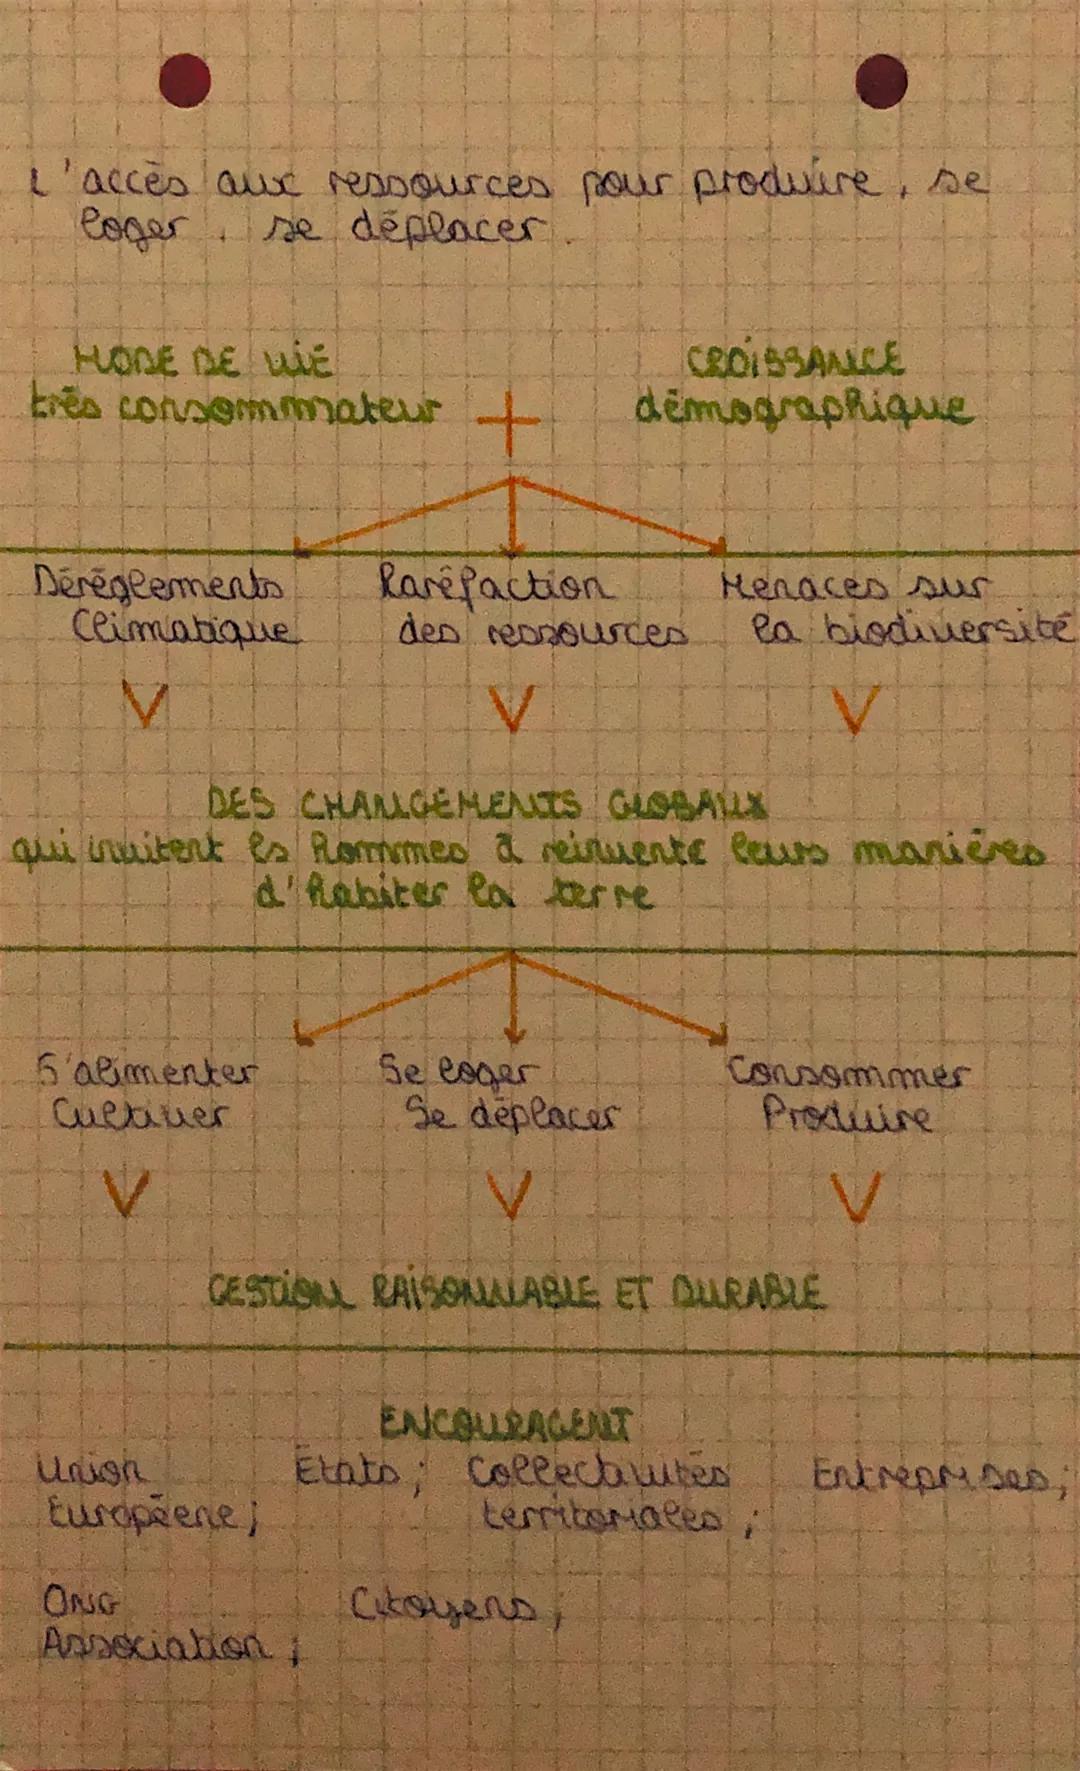 L'accès aux ressources pour produire, se
loger, se déplacer.
MODE DE VIE
très consommateur
+
CROISSANCE
démographique
Déréglements
Climatique
Raréfaction
des ressources
Menaces sur
la biodiversité
DES CHANGEMENTS GLOBAUX
qui invitent les hommes à réinventer leurs manières
d'habiter la terre
S'alimenter
Cultiver
Se loger
Se déplacer
Consommer
Produire
GESTION RAISONNABLE ET DURABLE
ENCOURAGENT
Union
Européene;
Etats;
Collectivités
territoriales;
Entreprises;
ONG
Association;
Citoyens;